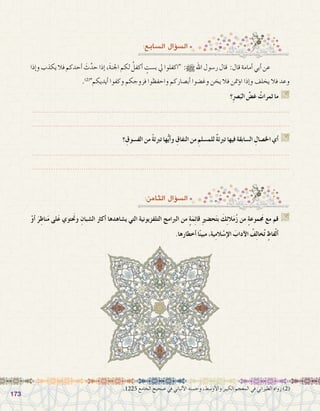 السؤال السابع:
عن أبي أمامة قال: قال رسول الله ﷺ: "اكفلوا لي بستٍ أكفلْ لكم الجنة، إذا حدَّثَ أحدكم فلا يكذب وإذا
وعد فلا يخلف وإذا اؤتمن فلا يخن وغضوا أبصاركم واحفظوا فروجكم وكفوا أيديكم"(2).
ما ثمراتُ غضِّ البَصَرِ؟
أي الخصالِ السابقة فيها تبرئةٌ للمسلم من النفاقِ وأيُّها تبرئةٌ من الفسوقِ؟
السؤال الثامن:
قم مع مجموعةٍ من زملائكَ بتحضيرِ قائمةٍ من البرامجِ التلفزيونية التي يشاهدها أكثرُ الشبانِ وتحتوي على مَناظِرَ أوْ
ألْفاظٍ تُخالفُ الآدابَ الإسْلاميةَ، مبينًا أخطارها.
(2) رواه الطبراني في المعجم الكبير والأوسط، وحسنه الألباني في صحيح الجامع 1225.
173